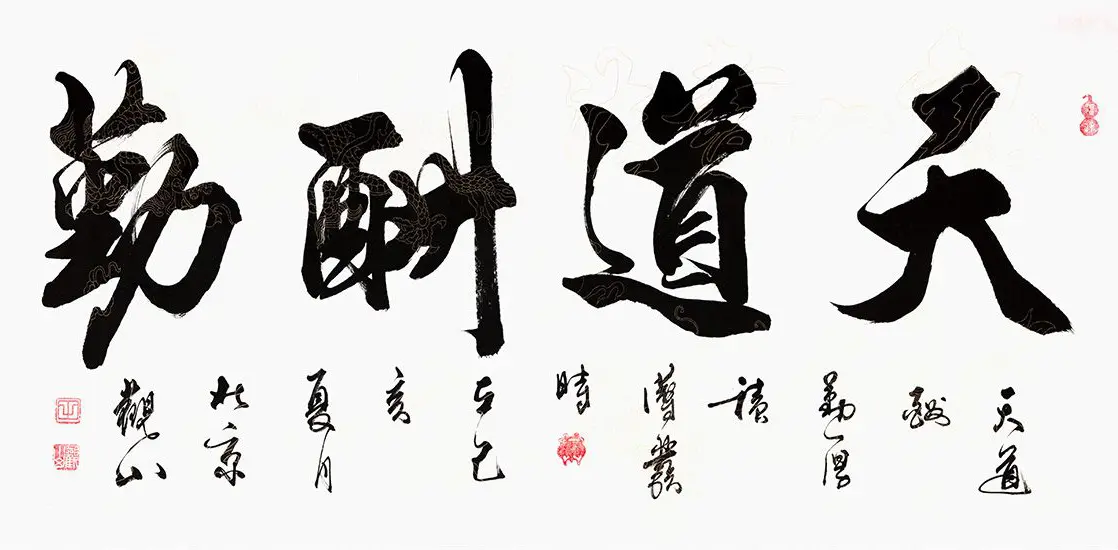 天道酬勤
天道
酬
勤厚
積
薄發
時
于己
亥
夏月
北京
觀山